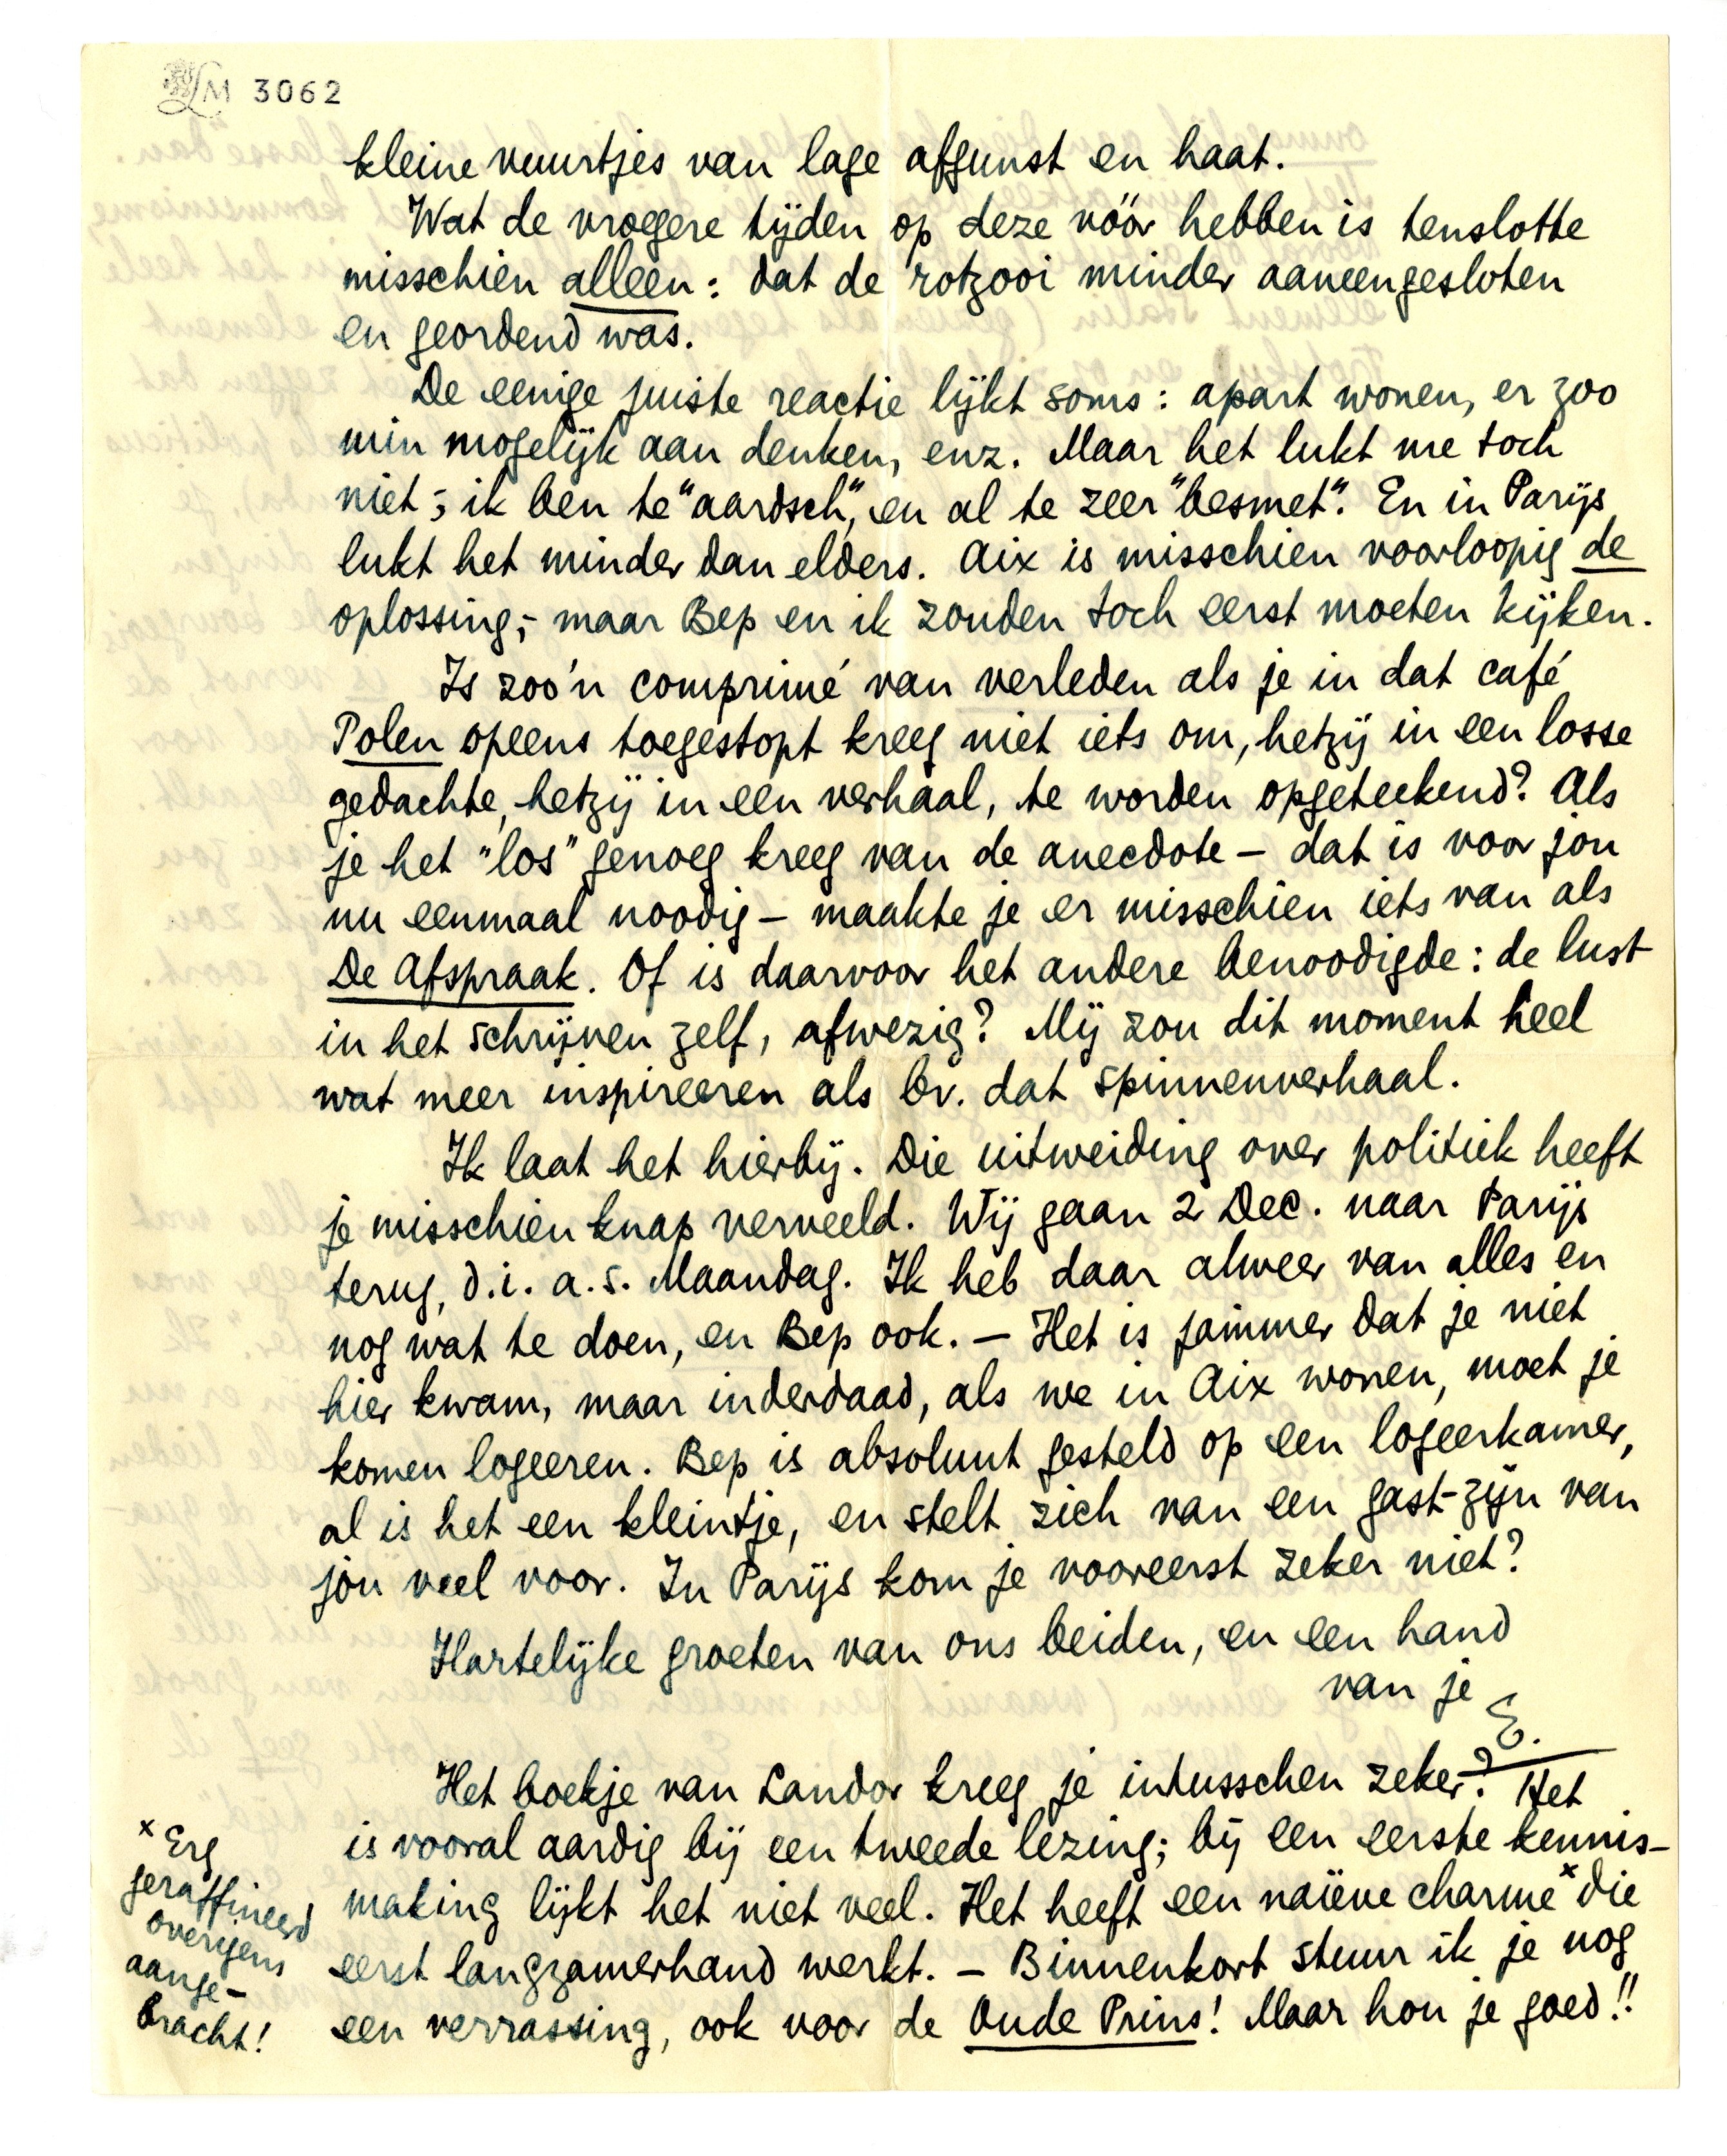 LM 3062
kleine vuurtjes van lage afgunst en haat.
Wat de vroegere tijden op deze vóór hebben is tenslotte
misschien alleen: dat de rotzooi minder aaneengesloten
en geordend was.
De eenige juiste reactie lijkt soms: apart wonen, er zoo
min mogelijk aan denken, enz. Maar het lukt me toch
niet; ik ben te "aardsch", en al te zeer "besmet". En in Parijs
lukt het minder dan elders. Aix is misschien voorloopig de
oplossing; - maar Bep en ik zouden toch eerst moeten kijken.
Is zoo'n comprimé van verleden als je in dat café
Polen opeens toegestopt kreeg niet iets om, hetzij in een losse
gedachte, hetzij in een verhaal, te worden opgeteekend? Als
je het "los" genoeg kreeg van de anecdote – dat is voor jou
nu eenmaal noodig – maakte je er misschien iets van als
De Afspraak. Of is daarvoor het andere benoodigde: de lust
in het schrijven zelf, afwezig? Mij zou dit moment heel
wat meer inspireeren als bv. dat spinnenverhaal.
Ik laat het hierbij. Die uitweiding over politiek heeft
je misschien knap verveeld. Wij gaan 2 Dec. naar Parijs
terug, d.i. a.s. Maandag. Ik heb daar alweer van alles en
nog wat te doen, en Bep ook. – Het is jammer dat je niet
hier kwam, maar inderdaad, als we in Aix wonen, moet je
komen logeeren. Bep is absoluut gesteld op een logeerkamer,
al is het een kleintje, en stelt zich van een gast-zijn van
jou veel voor. In Parijs kom je vooreerst zeker niet?
Hartelijke groeten van ons beiden, en een hand
van je
E.
Het boekje van Landor kreeg je intusschen zeker? Het
is vooral aardig bij een tweede lezing; bij een eerste kennis-
making lijkt het niet veel. Het heeft een naïeve charme x die
eerst langzamerhand werkt. – Binnenkort stuur ik je nog
een verrassing, ook voor de Oude Prins! Maar hou je goed!!
x Erg
geraffineerd
overigens
aange-
bracht!